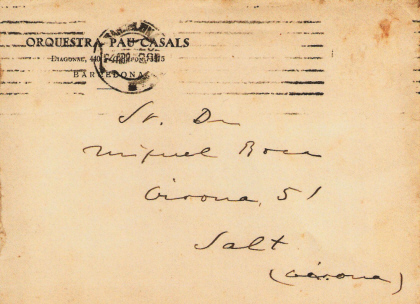 ORQUESTRA PAU CASALS
DIAGONAL, 440
BARCELONA
Sr. Dn
Miquel Roca
Girona, 51
Salt
(Girona)